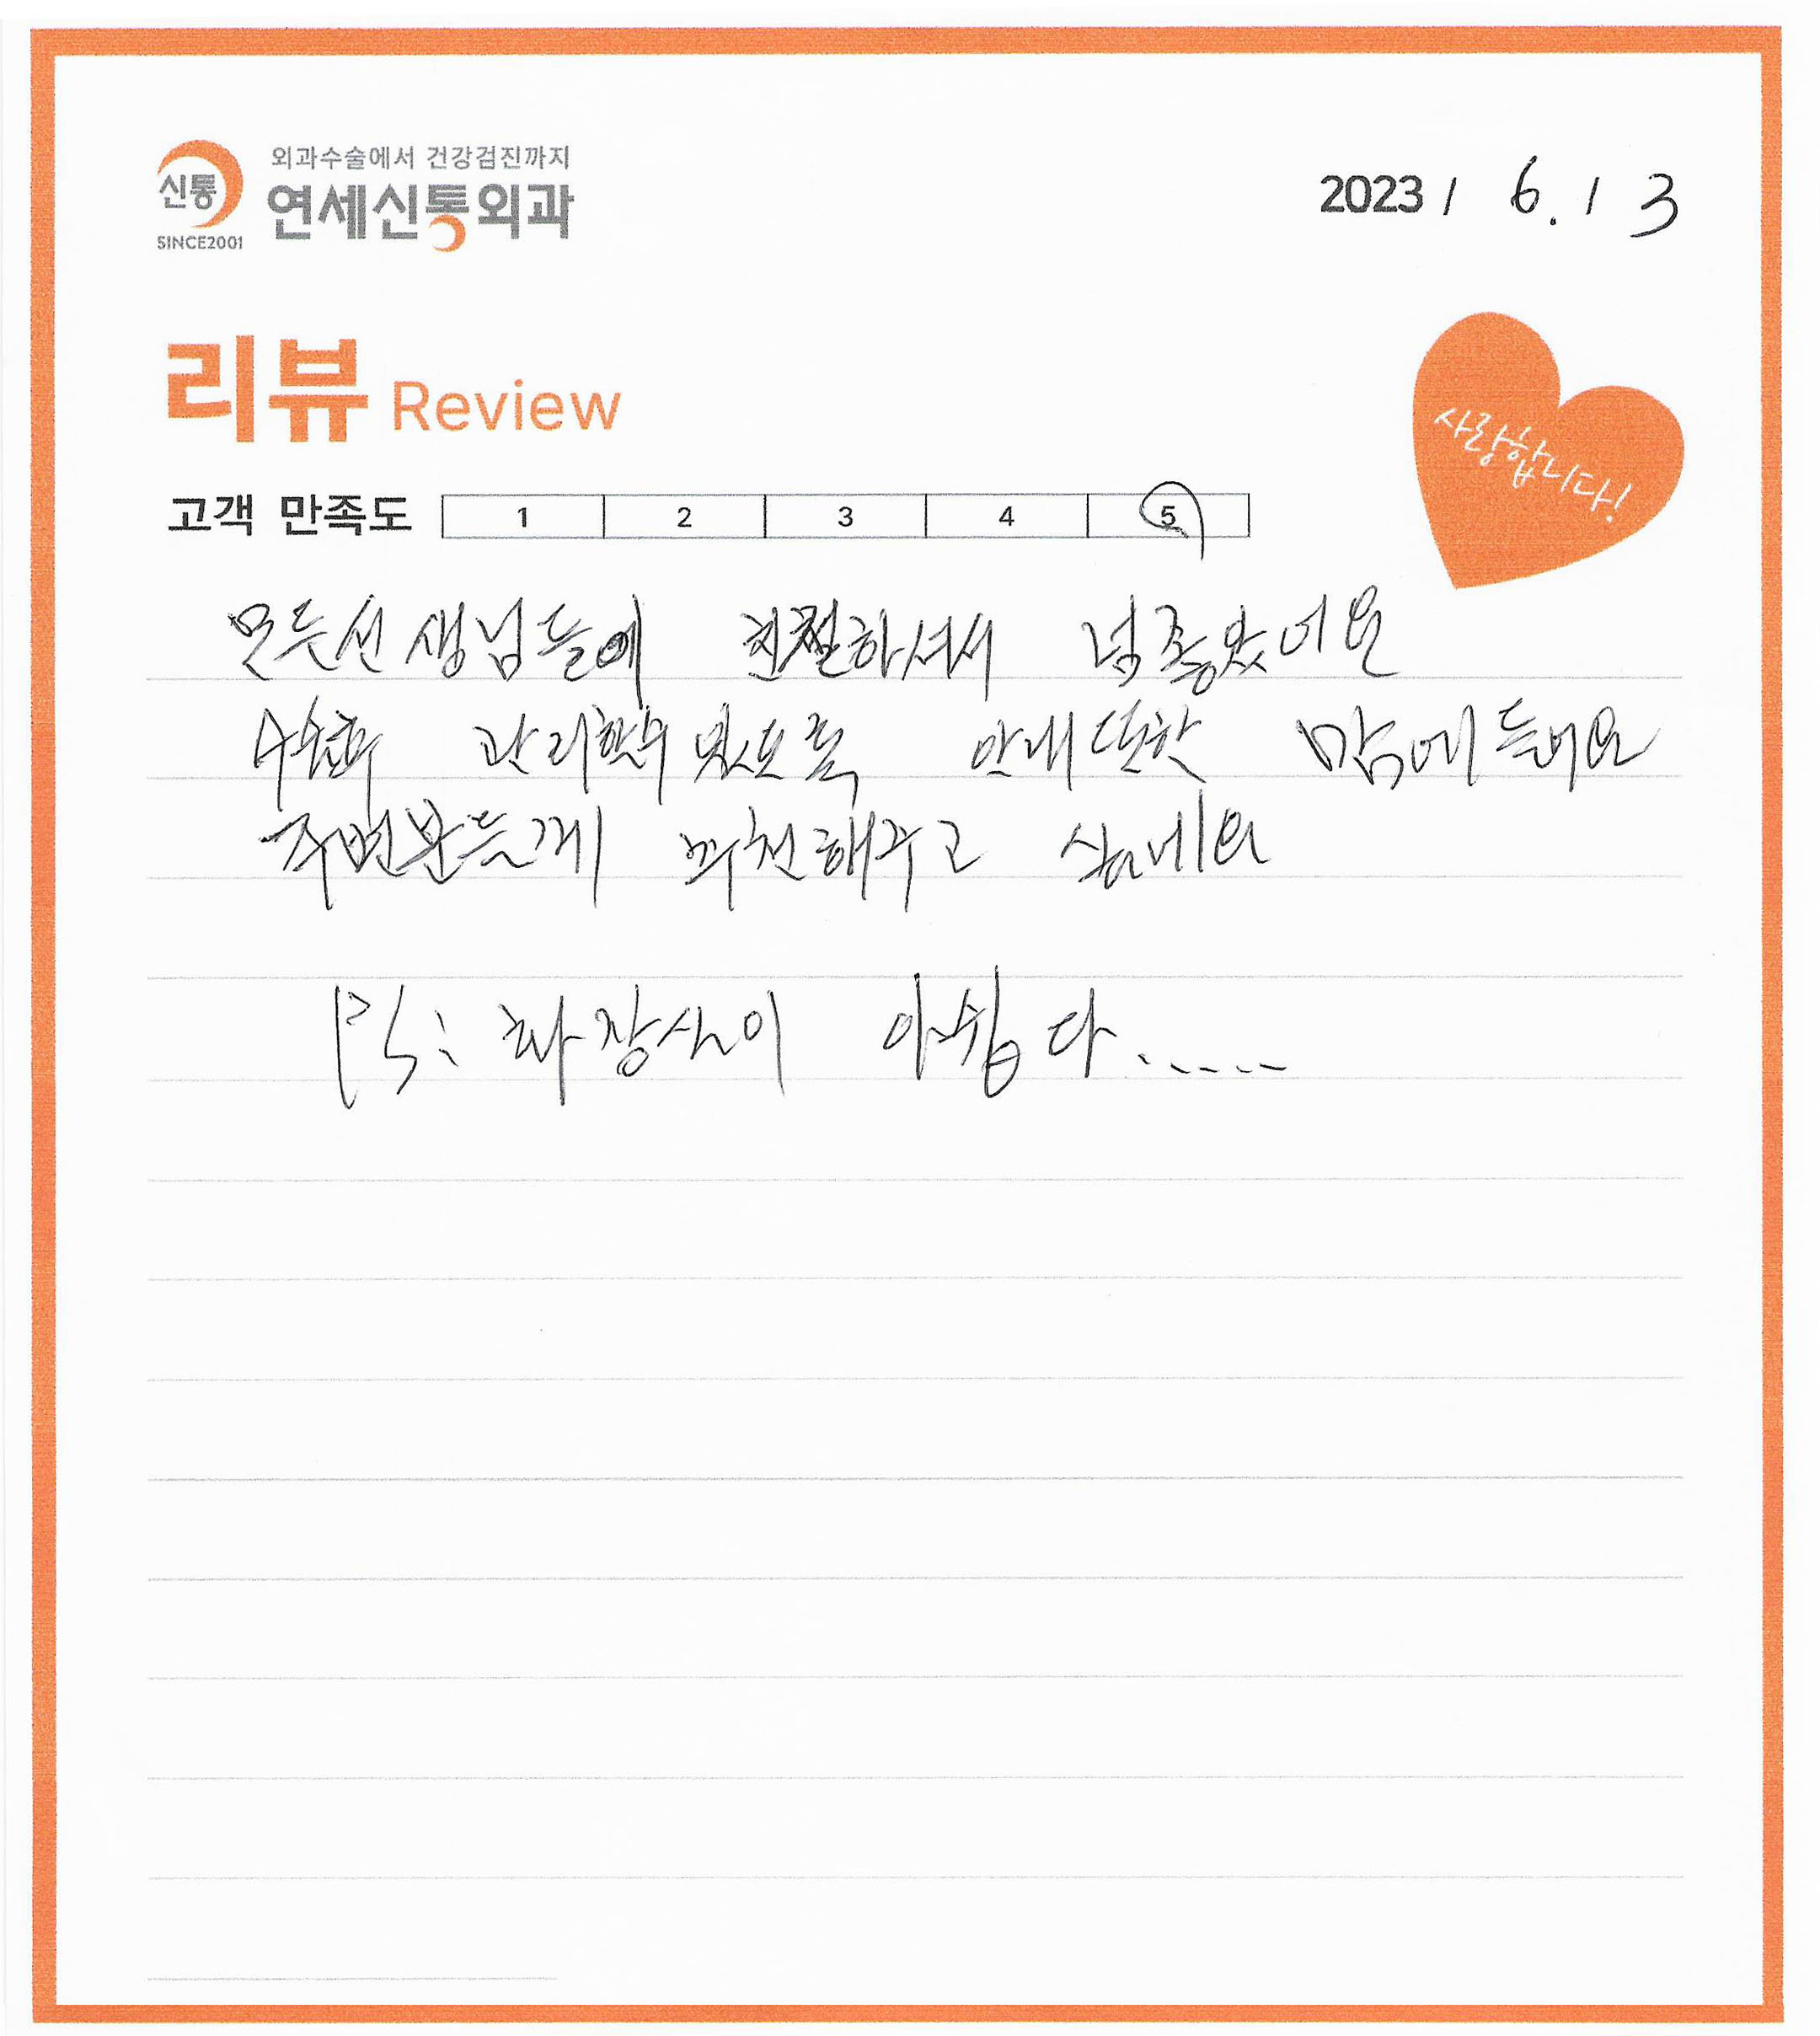 외과수술에서 건강검진까지
신통
연세신통외과
SINCE2001
2023 / 6. 13
리뷰 Review
사랑합니다!
고객 만족도 1 2 3 4 5
모든선생님들에 친절하셔서 넘좋았어요
관리할수있도록 안내또한 맘에들어요
주변분들께 추천해주고 싶네요
PS: 화장실이 아쉽다.....